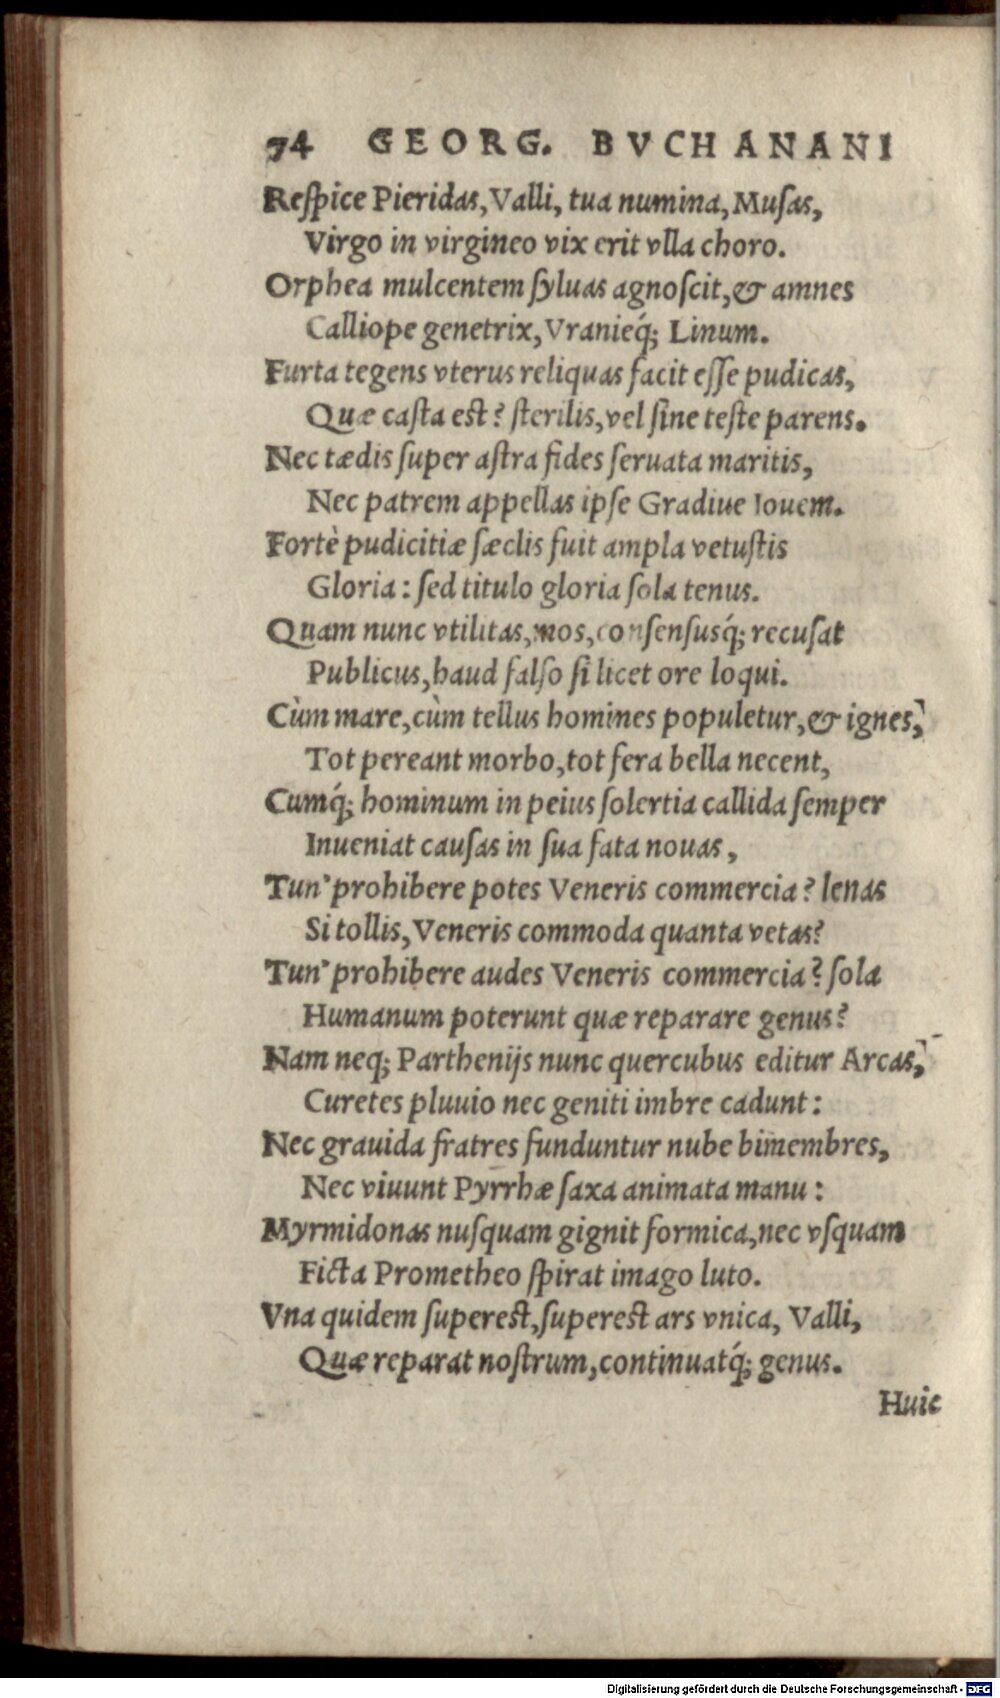 74 GEORG. BVCHANANI
Reſpice Pieridas, Valli, tua numina, Muſas,
Virgo in virgineo vix erit vlla choro.
Orphea mulcentem ſyluas agnoſcit, & amnes
Calliope genetrix, Vranieq́; Linum.
Furta tegens vterus reliquas facit eſſe pudicas,
Quæ caſta est? ſterilis, vel ſine teſte parens.
Nec tædis ſuper aſtra fides ſeruata maritis,
Nec patrem appellas ipſe Gradiue Iouem.
Fortè pudicitiæ ſæclis fuit ampla vetuſtis
Gloria: ſed titulo gloria ſola tenus.
Quam nunc vtilitas, mos, conſenſusq́; recuſat
Publicus, haud falſo ſi licet ore loqui.
Cùm mare, cùm tellus homines populetur, & ignes,
Tot pereant morbo, tot fera bella necent,
Cumq́; hominum in peius ſolertia callida ſemper
Inueniat cauſas in ſua fata nouas,
Tun' prohibere potes Veneris commercia? lenas
Si tollis, Veneris commoda quanta vetas?
Tun' prohibere audes Veneris commercia? ſola
Humanum poterunt quæ reparare genus?
Nam neq; Parthenijs nunc quercubus editur Arcas,
Curetes pluuio nec geniti imbre cadunt:
Nec grauida fratres funduntur nube bimembres,
Nec viuunt Pyrrhæ ſaxa animata manu:
Myrmidonas nuſquam gignit formica, nec vſquam
Ficta Prometheo ſpirat imago luto.
Vna quidem ſuperest, ſuperest ars vnica, Valli,
Quæ reparat noſtrum, continuatq́; genus.
Huic
Digitalisierung gefördert durch die Deutsche Forschungsgemeinschaft - DFG